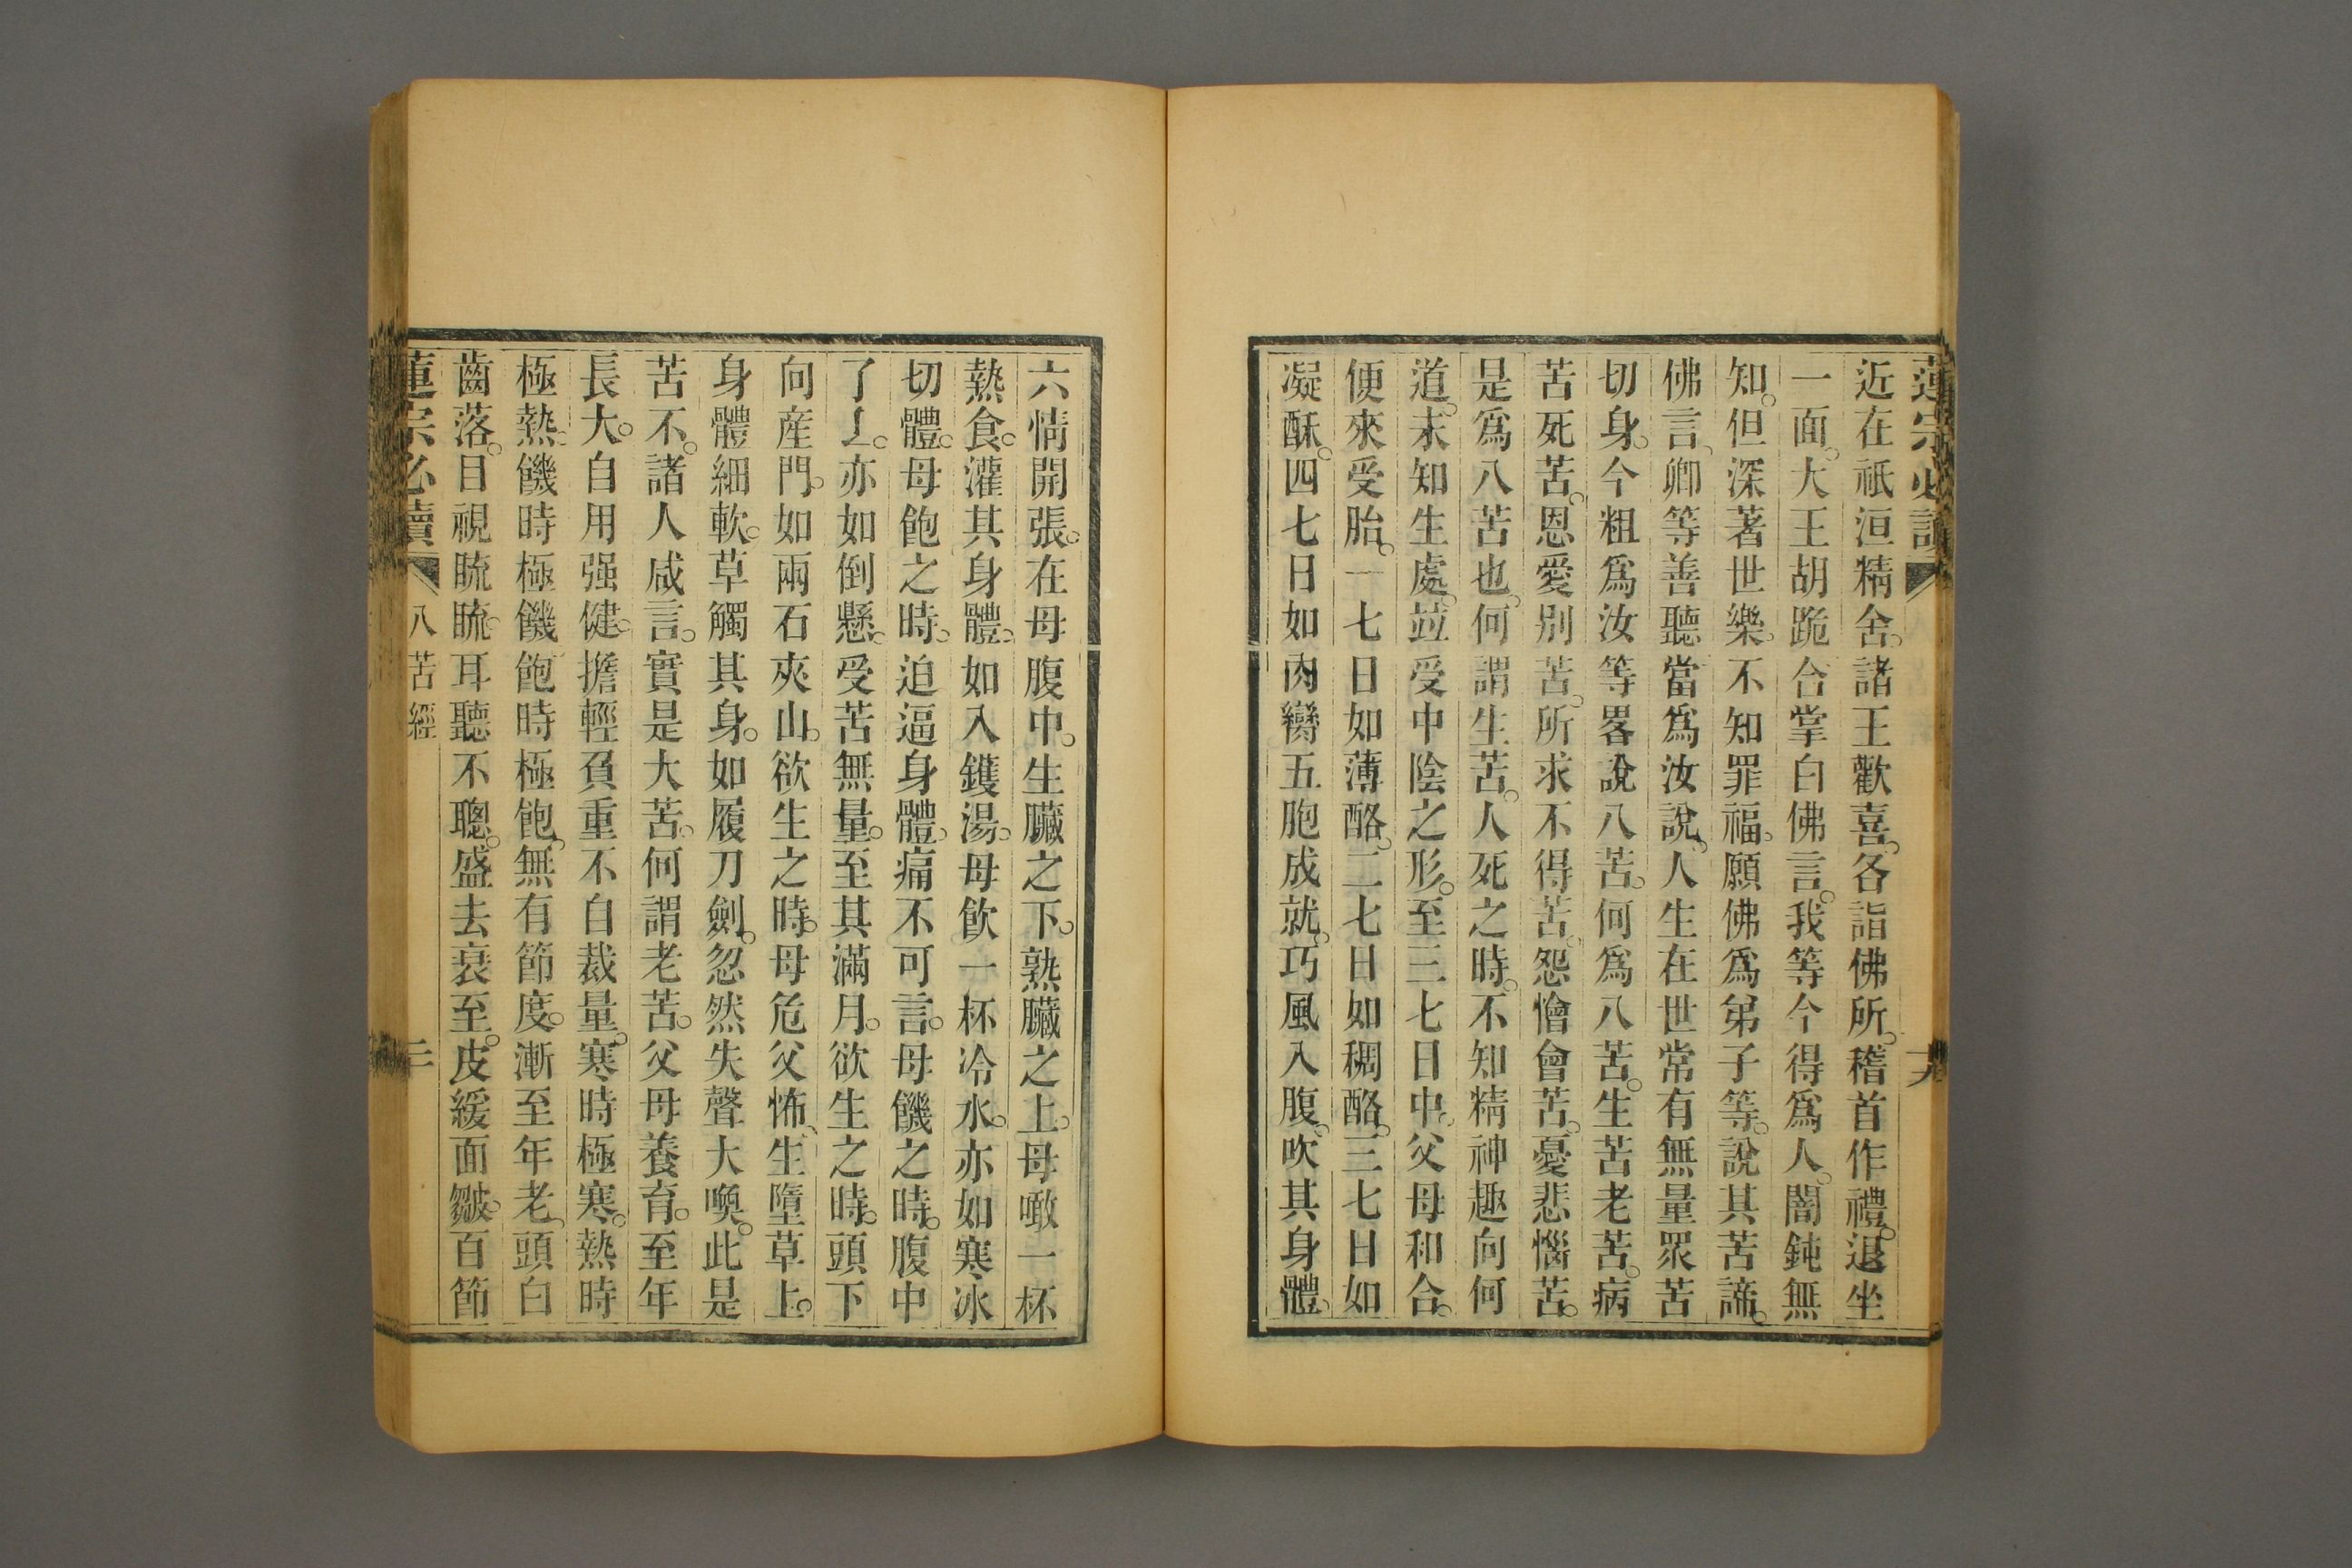 蓮宗必讀
十九
近在祇洹精舍。諸王歡喜。各詣佛所。稽首作禮。退坐
一面。大王胡跪合掌白佛言。我等今得爲人。闇鈍無
知。但深著世樂。不知罪福。願佛爲弟子等。說其苦諦。
佛言。卿等善聽當爲汝說。人生在世常有無量眾苦
切身。今粗爲汝等畧說八苦。何爲八苦。生苦老苦。病
苦死苦。恩愛別苦。所求不得苦。怨憎會苦。憂悲惱苦。
是爲八苦也。何謂生苦。人死之時。不知精神趣向何
道。未知生處。並受中陰之形。至三七日中。父母和合。
便來受胎。一七日如薄酪。二七日如稠酪。三七日如
凝酥。四七日如肉臠五胞成就。巧風入腹。吹其身體。
六情開張。在母腹中。生臟之下。熟臟之上。母噉一杯
熱食。灌其身體。如入鑊湯。母飲一杯冷水。亦如寒冰
切體。母飽之時。迫逼身體。痛不可言。母饑之時。腹中
了了。亦如倒懸。受苦無量。至其滿月。欲生之時。頭下
向産門。如兩石夾山。欲生之時。母危父怖。生墮草上。
身體細軟。草觸其身。如履刀劍。忽然失聲大喚。此是
苦不。諸人咸言。實是大苦。何謂老苦。父母養育。至年
長大。自用强健。擔輕負重不自裁量。寒時極寒。熱時
極熱。饑時極饑飽時極飽。無有節度。漸至年老。頭白
齒落。目視䀮䀮。耳聽不聰。盛去衰至。皮緩面皺。百節
蓮宗必讀
八苦經
二